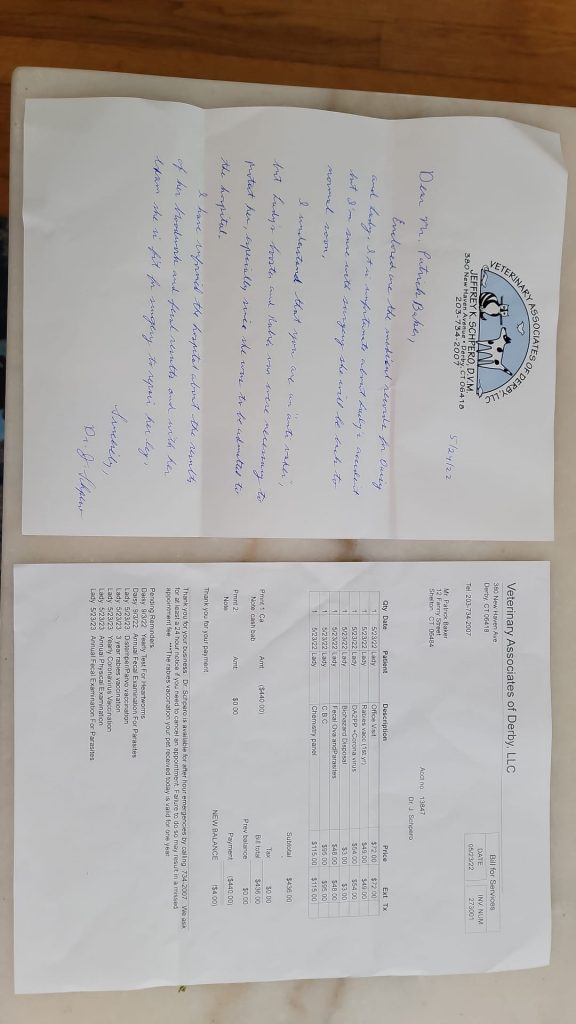 VETERINARY ASSOCIATES OF DERBY, LLC
JEFFREY K. SCHPERO, D.V.M.
380 New Haven Avenue • Derby, CT 06418
203-734-2007
5/24/22
Dear Mr. Patrick Baker,
Enclosed are the medical records for Daisy
and Lady. It is unfortunate about Lady's accident
but I'm sure with surgery she will be back to
normal soon.
I understand that you are an "anti vaxer",
but Lady's booster and Rabies vac were necessary to
protect her, especially since she were to be admitted to
the hospital.
I have informed the hospital about the results
of her bloodwork and fecal results and with her
exam she is fit for surgery to repair her leg.
Sincerely,
Dr. J. Schpero
Veterinary Associates of Derby, LLC
380 New Haven Ave
Derby, CT 06418
Tel 203-734-2007
Bill for Services
DATE INV. NUM
05/23/22 273001
Mr. Patrick Baker
12 Fanny Street
Shelton, CT 06484
Acct no 13847
Dr. J. Schpero
Qty Date Patient Description Price Ext Tx
1 5/23/22 Lady Office Visit $72.00 $72.00
1 5/23/22 Lady Rabies vacc (1st yr) $49.00 $49.00
1 5/23/22 Lady DA2PP +Corona virus $54.00 $54.00
1 5/23/22 Lady Biohazard Disposal $3.00 $3.00
1 5/23/22 Lady Fecal Ova and Parasites $48.00 $48.00
1 5/23/22 Lady C B C $95.00 $95.00
1 5/23/22 Lady Chemistry panel $115.00 $115.00
Subtotal $436.00
Tax $0.00
Bill total $436.00
Prev balance $0.00
Payment ($440.00)
NEW BALANCE ($4.00)
Pmnt 1 Ca Amt ($440.00)
Note cash bal
Pmnt 2 Amt $0.00
Note
Thank you for your payment
Thank you for your business. Dr. Schpero is available for after hour emergencies by calling 734-2007. We ask
for at least a 24 hour notice if you need to cancel an appointment. Failure to do so may result in a missed
appointment fee. ****The rabies vaccination your pet received today is valid for one year.
Pending Reminders
Daisy 9/3/22 Yearly Test For Heartworms
Daisy 9/3/22 Annual Fecal Examination For Parasites
Lady 5/23/23 Distemper/Parvo vaccination
Lady 5/23/23 3 year rabies vaccination
Lady 5/23/23 Yearly Coronavirus Vaccination
Lady 5/23/23 Annual Physical Examination
Lady 5/23/23 Annual Fecal Examination For Parasites